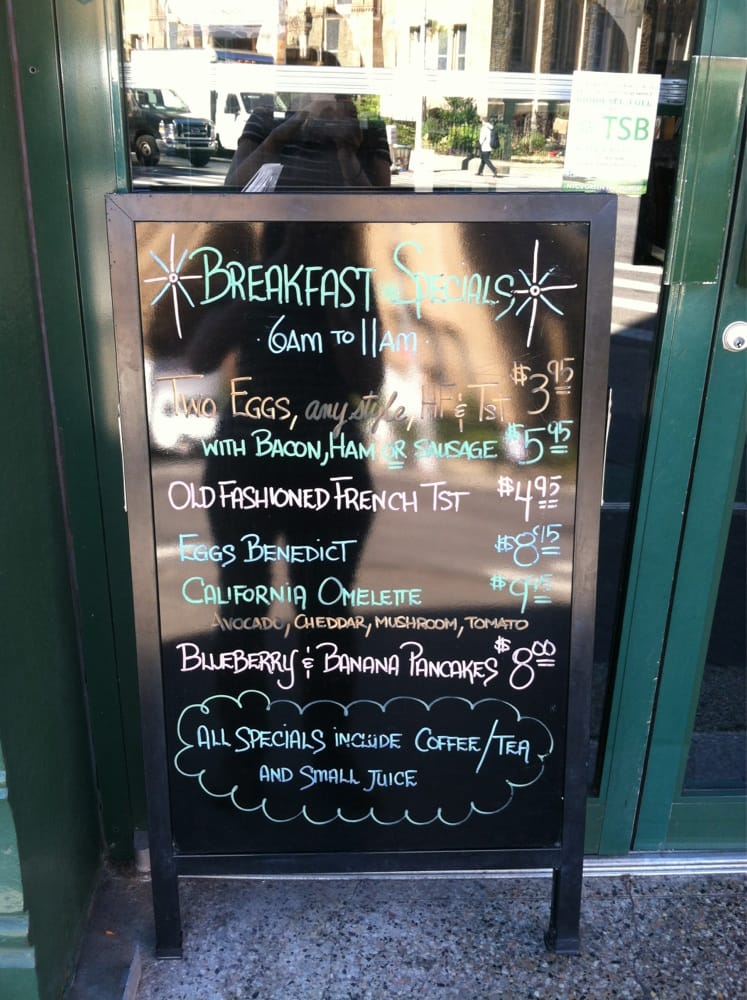 TSB
BREAKFAST SPECIALS
6AM TO 11AM
TWO EGGS, any style, HF & TST $3.95
WITH BACON, HAM OR SAUSAGE $5.95
OLD FASHIONED FRENCH TST $4.95
EGGS BENEDICT
CALIFORNIA OMELETTE
AVOCADO, CHEDDAR, MUSHROOM, TOMATO
BLUEBERRY & BANANA PANCAKES $8.00
ALL SPECIALS INCLUDE COFFEE/TEA
AND SMALL JUICE